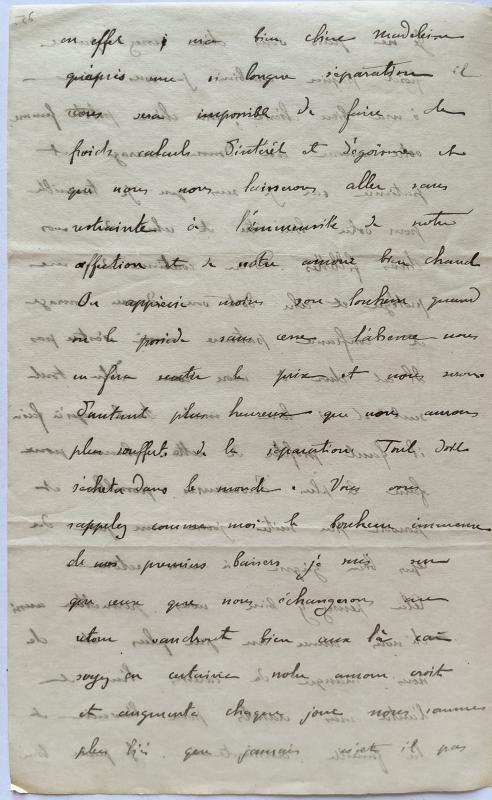 en effet, ma bien chère Madeleine
qu'après une si longue séparation il
nous sera impossible de faire de
froids calculs d'intérêt et d'égoisme et
que nous nous laisserons aller sans
restrainte à l'immensité de notre
affection et de notre amour bien chaud
On apprécie moins son bonheur quand
on le possède sans cesse l'absence nous
en fera le prix et nous serons
d'autant plus heureux que nous aurons
plus soufferts de la séparation Tout doit
s'acheter dans le monde. Vous vous
rappelez comme moi le bonheur immense
de nos premiers baisers je suis sur
que ceux que nous échangerons au
retour vaudront bien aux là car
soyez en certaine notre amour croit
et augmente chaque jour nous sommes
plus liés que jamais il pas